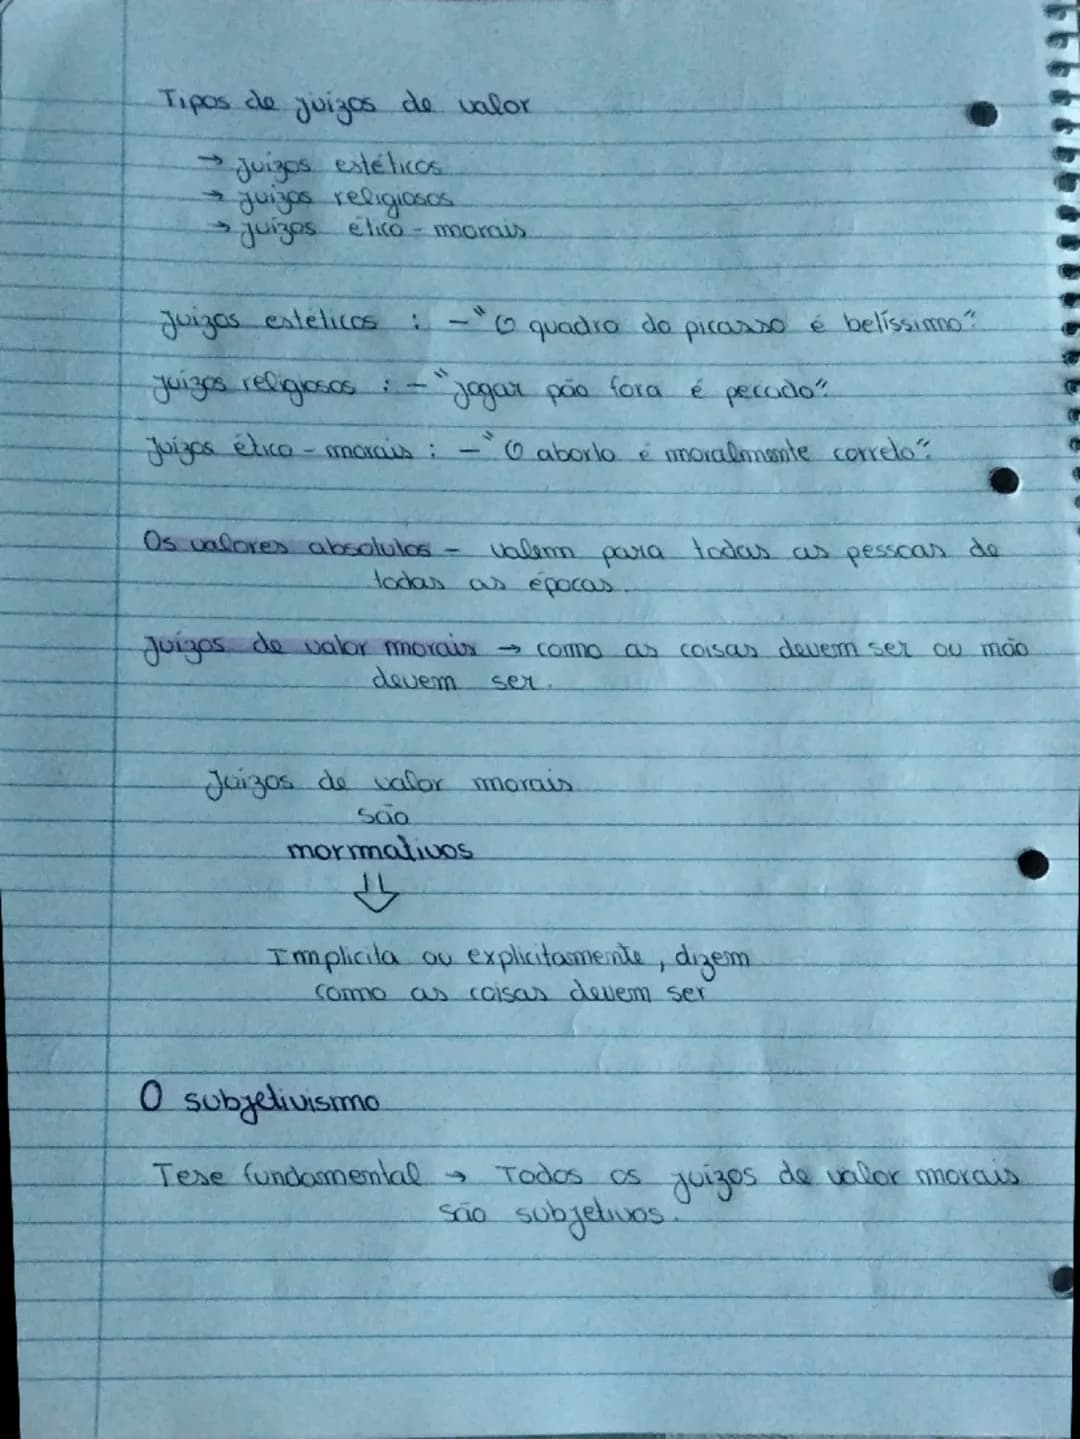 Tipos de juízos de valor
→ Juízos estéticos
→ juízos religiosos
→ juízos ético-morais
Juízos estéticos : - "O quadro do picasso é belíssimo".
juízos religiosos : - "jogar pão fora é pecado".
Juízos ético-morais : - "O aborto é moralmente correto".
Os valores absolutos - valem para todas as pessoas de
todas as épocas.
Juízos de valor morais → como as coisas devem ser ou não
devem ser.
Juizos de valor morais
são
normativos
⇓
Implicita ou explicitamente, dizem
como as coisas devem ser
O subjetivismo
Tese fundamental → Todos os juízos de valor morais
são subjetivos.